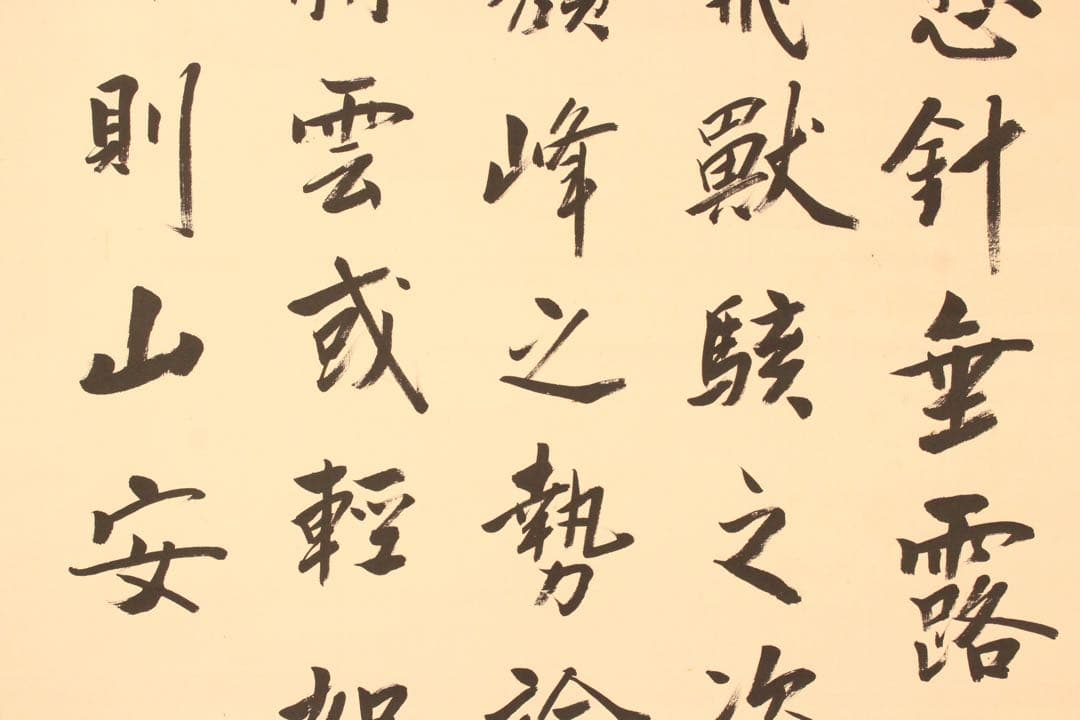 針垂露
獸駭之
峰之勢
雲或輕
則山安